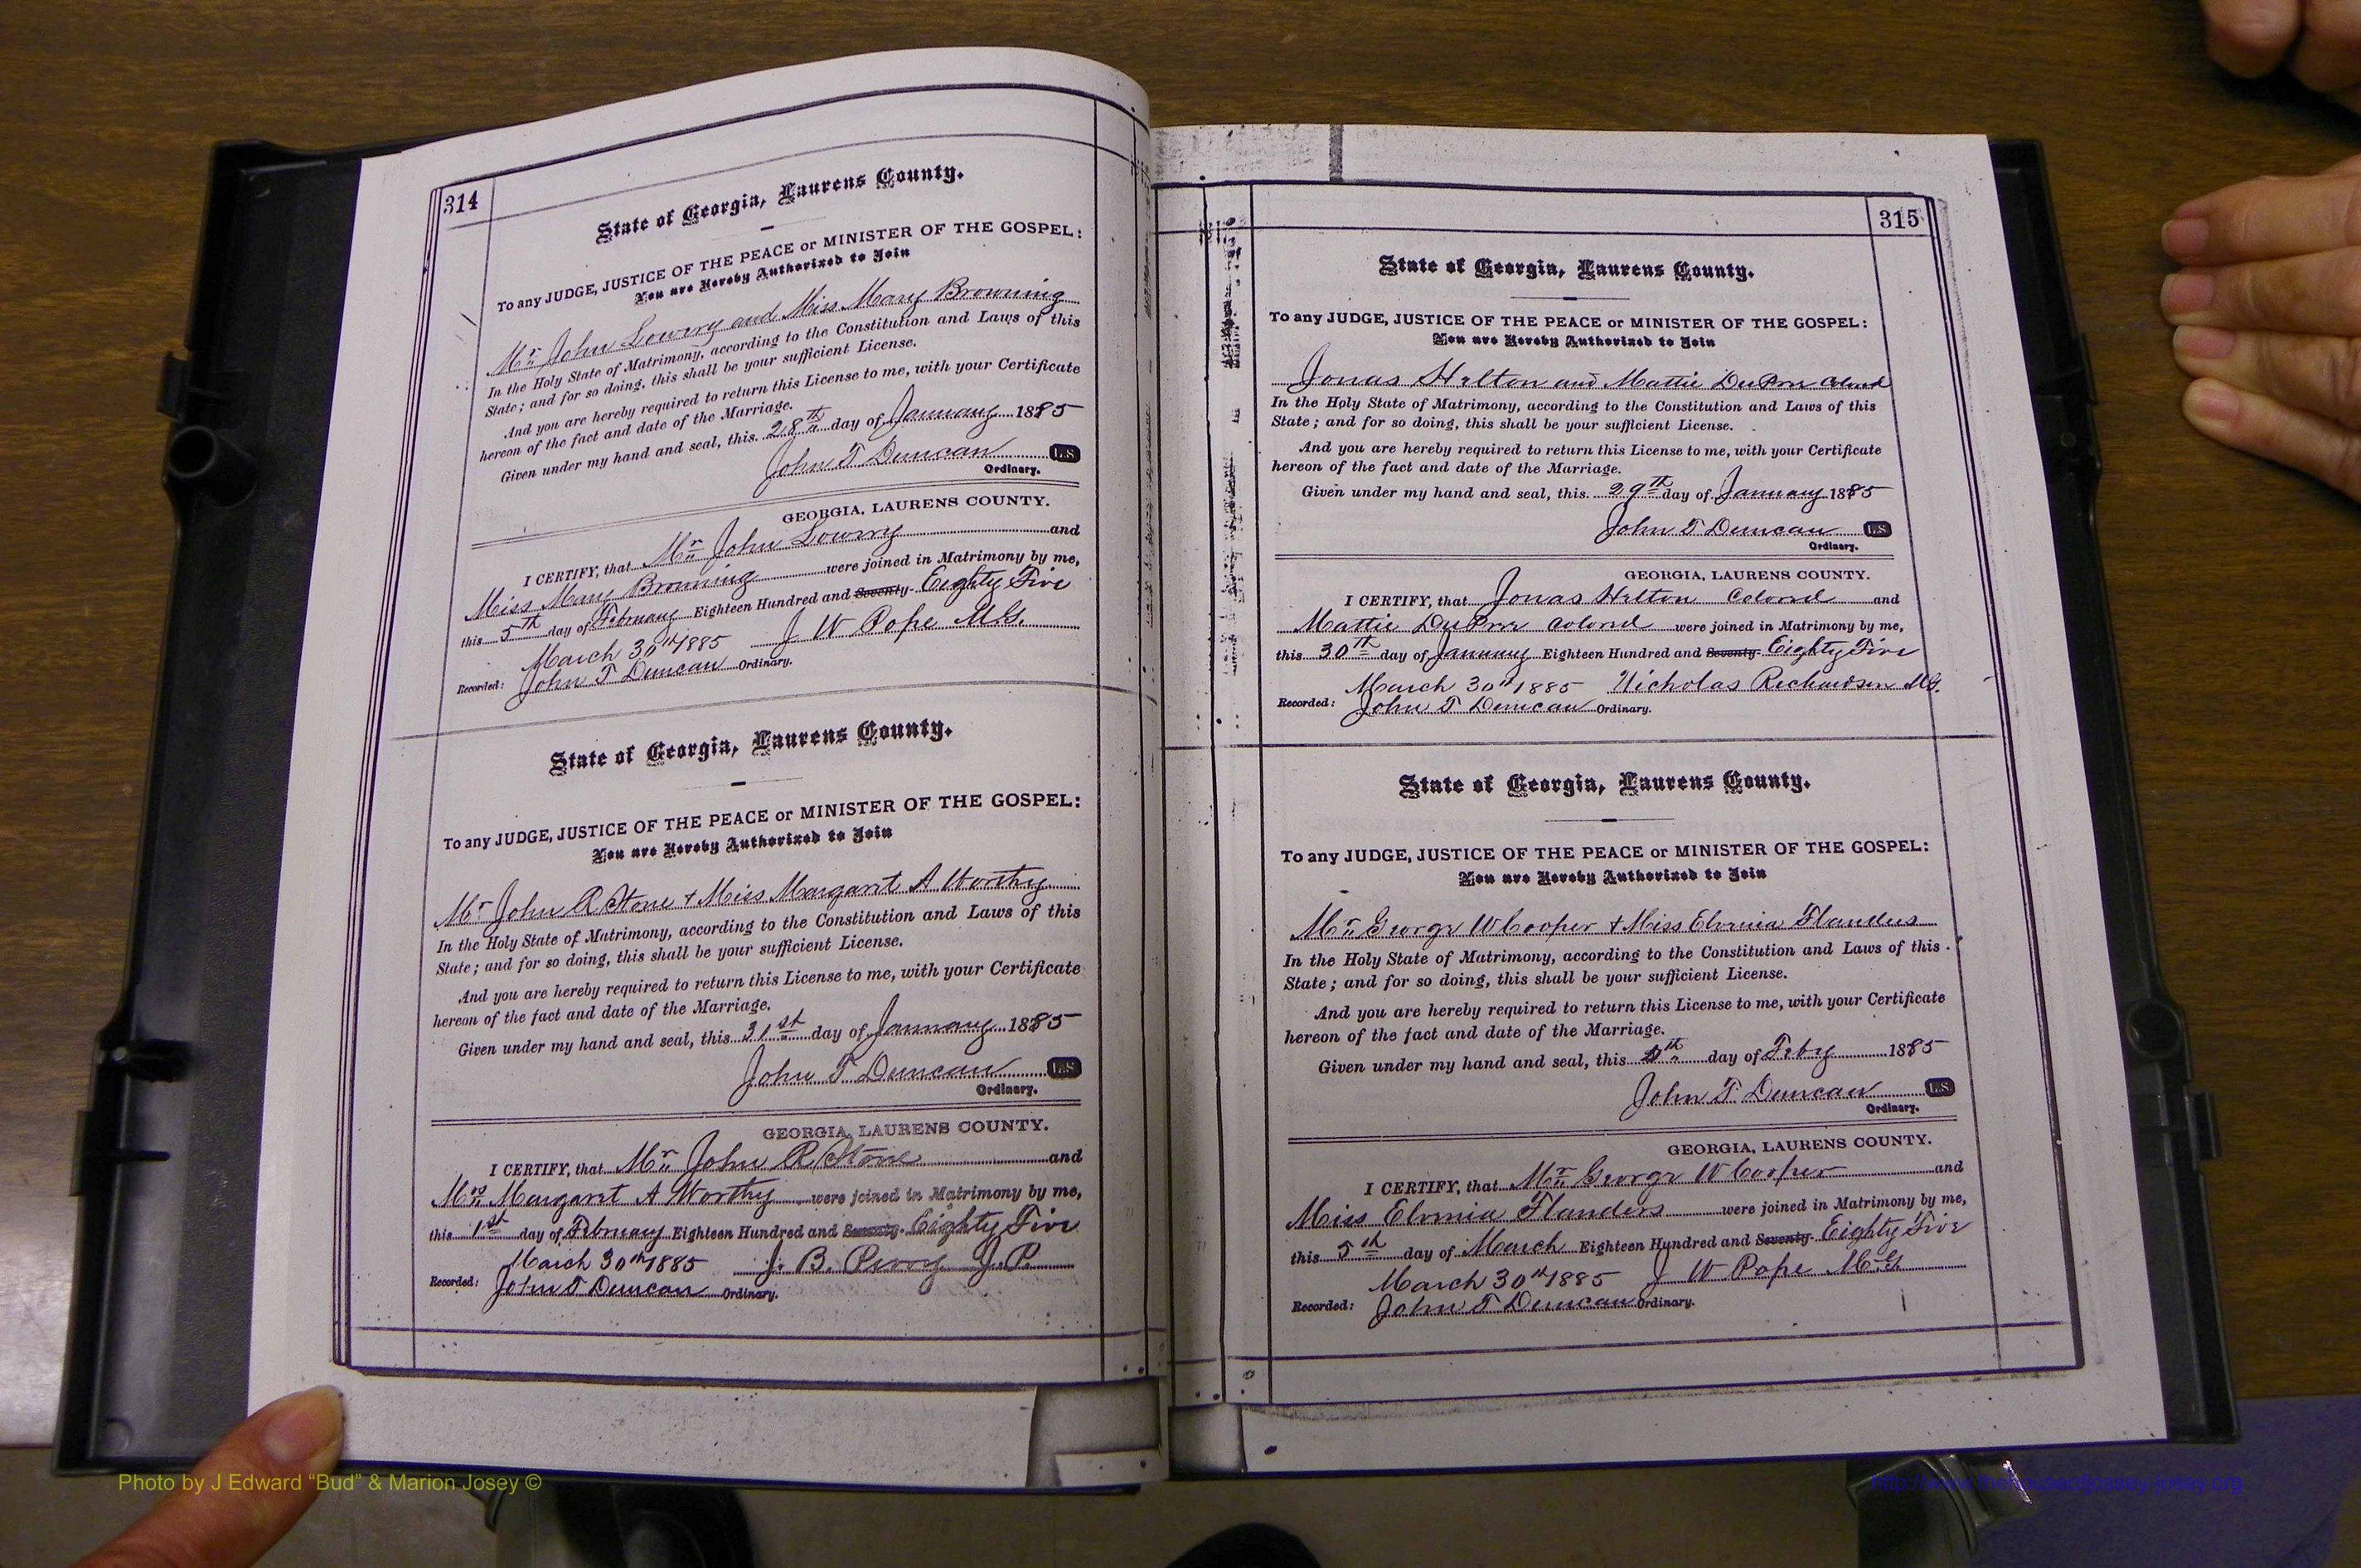 314
State of Georgia, Laurens County.
To any JUDGE, JUSTICE OF THE PEACE or MINISTER OF THE GOSPEL:
You are Hereby Authorized to Join
Mr John Lowry and Miss Mary Browning
In the Holy State of Matrimony, according to the Constitution and Laws of this
State; and for so doing, this shall be your sufficient License.
And you are hereby required to return this License to me, with your Certificate
hereon of the fact and date of the Marriage.
Given under my hand and seal, this 28th day of January 1885
John T Duncan L.S.
Ordinary.
GEORGIA, LAURENS COUNTY.
I CERTIFY, that Mr John Lowry and
Miss Mary Browning were joined in Matrimony by me,
this 5th day of February Eighteen Hundred and Seventy- Eighty Five
March 30th 1885 J W Pope M.G.
Recorded: John T Duncan Ordinary.
State of Georgia, Laurens County.
To any JUDGE, JUSTICE OF THE PEACE or MINISTER OF THE GOSPEL:
You are Hereby Authorized to Join
Mr John R Stone + Miss Margaret A Worthy
In the Holy State of Matrimony, according to the Constitution and Laws of this
State; and for so doing, this shall be your sufficient License.
And you are hereby required to return this License to me, with your Certificate
hereon of the fact and date of the Marriage.
Given under my hand and seal, this 31st day of January 1885
John T Duncan L.S.
Ordinary.
GEORGIA, LAURENS COUNTY.
I CERTIFY, that Mr John R Stone and
Mrs Margaret A Worthy were joined in Matrimony by me,
this 1st day of February Eighteen Hundred and Seventy- Eighty Five
March 30th 1885 J. B. Perry J.P.
Recorded: John T Duncan Ordinary.
315
State of Georgia, Laurens County.
To any JUDGE, JUSTICE OF THE PEACE or MINISTER OF THE GOSPEL:
You are Hereby Authorized to Join
Jonas Helton and Mattie DuPree Colored
In the Holy State of Matrimony, according to the Constitution and Laws of this
State; and for so doing, this shall be your sufficient License.
And you are hereby required to return this License to me, with your Certificate
hereon of the fact and date of the Marriage.
Given under my hand and seal, this 29th day of January 1885
John T Duncan L.S.
Ordinary.
GEORGIA, LAURENS COUNTY.
I CERTIFY, that Jonas Helton Colored and
Mattie DuPree Colored were joined in Matrimony by me,
this 30th day of January Eighteen Hundred and Seventy- Eighty Five
March 30th 1885 Nicholas Richardson M.G.
Recorded: John T Duncan Ordinary.
State of Georgia, Laurens County.
To any JUDGE, JUSTICE OF THE PEACE or MINISTER OF THE GOSPEL:
You are Hereby Authorized to Join
Mr George W Cooper + Miss Flanders
In the Holy State of Matrimony, according to the Constitution and Laws of this
State; and for so doing, this shall be your sufficient License.
And you are hereby required to return this License to me, with your Certificate
hereon of the fact and date of the Marriage.
Given under my hand and seal, this day of Feby 1885
John T. Duncan L.S.
Ordinary.
GEORGIA, LAURENS COUNTY.
I CERTIFY, that Mr George W Cooper and
Miss Flanders were joined in Matrimony by me,
this 5th day of March Eighteen Hundred and Seventy- Eighty Five
March 30th 1885 J W Pope M.G
Recorded: John T Duncan Ordinary.
Photo by J Edward “Bud” & Marion Josey ©